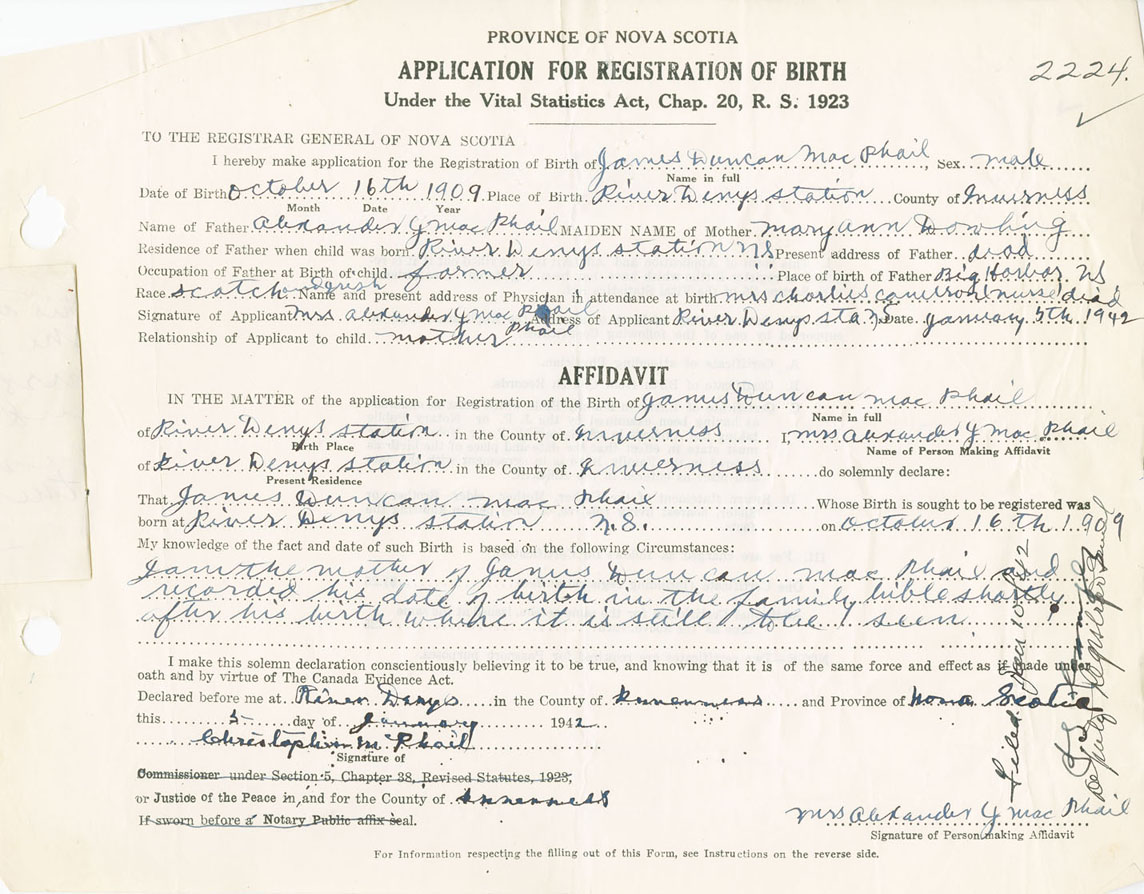 PROVINCE OF NOVA SCOTIA
APPLICATION FOR REGISTRATION OF BIRTH
2224.
Under the Vital Statistics Act, Chap. 20, R. S. 1923
TO THE REGISTRAR GENERAL OF NOVA SCOTIA
I hereby make application for the Registration of Birth of James Duncan Mac Phail, Sex male
Name in full
Date of Birth October 16th 1909 Place of Birth River Denys station County of Inverness
Month Date Year
Name of Father Alexander Y Mac Phail MAIDEN NAME of Mother Mary Ann Dowling
Residence of Father when child was born River Denys station NS Present address of Father dead
Occupation of Father at Birth of child farmer Place of birth of Father Big Harbor NS
Race scotch Name and present address of Physician in attendance at birth mrs charlies cameron nurse dead
Signature of Applicant mrs Alexander Y Mac Phail Address of Applicant River Denys sta NS Date January 5th 1942
Phail
Relationship of Applicant to child mother
AFFIDAVIT
IN THE MATTER of the application for Registration of the Birth of James Duncan Mac Phail
Name in full
of River Denys station in the County of Inverness I, mrs Alexander Y Mac Phail
Birth Place Name of Person Making Affidavit
of River Denys station in the County of Inverness do solemnly declare:
Present Residence
That James Duncan Mac Phail Whose Birth is sought to be registered was
born at River Denys station N.S. on October 16th 1909
My knowledge of the fact and date of such Birth is based on the following Circumstances:
I am the mother of James Duncan Mac Phail and
recorded his date of birth in the family bible shortly
after his birth where it is still to be seen
I make this solemn declaration conscientiously believing it to be true, and knowing that it is of the same force and effect as if made under
oath and by virtue of The Canada Evidence Act.
Declared before me at River Denys in the County of Inverness and Province of Nova Scotia
this 5 day of January 1942
Christopher M. Phail
Signature of
Commissioner under Section 5, Chapter 38, Revised Statutes, 1923,
or Justice of the Peace in and for the County of Inverness
If sworn before a Notary Public affix seal.
mrs Alexander Y Mac Phail
Signature of Person making Affidavit
For Information respecting the filling out of this Form, see Instructions on the reverse side.
Filed Jan 10 1942
Deputy Registrar General